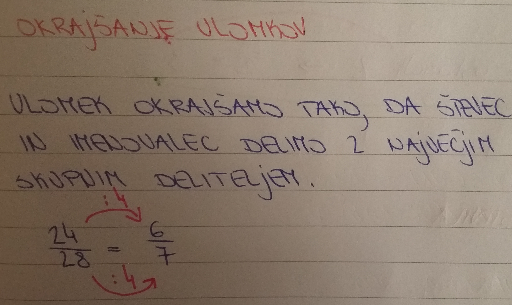 OKRAJŠANJE ULOMKOV
ULOMEK OKRAJŠAMO TAKO, DA ŠTEVEC
IN IMENOVALEC DELIMO Z NAJVEČJIM
SKUPNIM DELITELJEM.
:4
24/28 = 6/7
:4